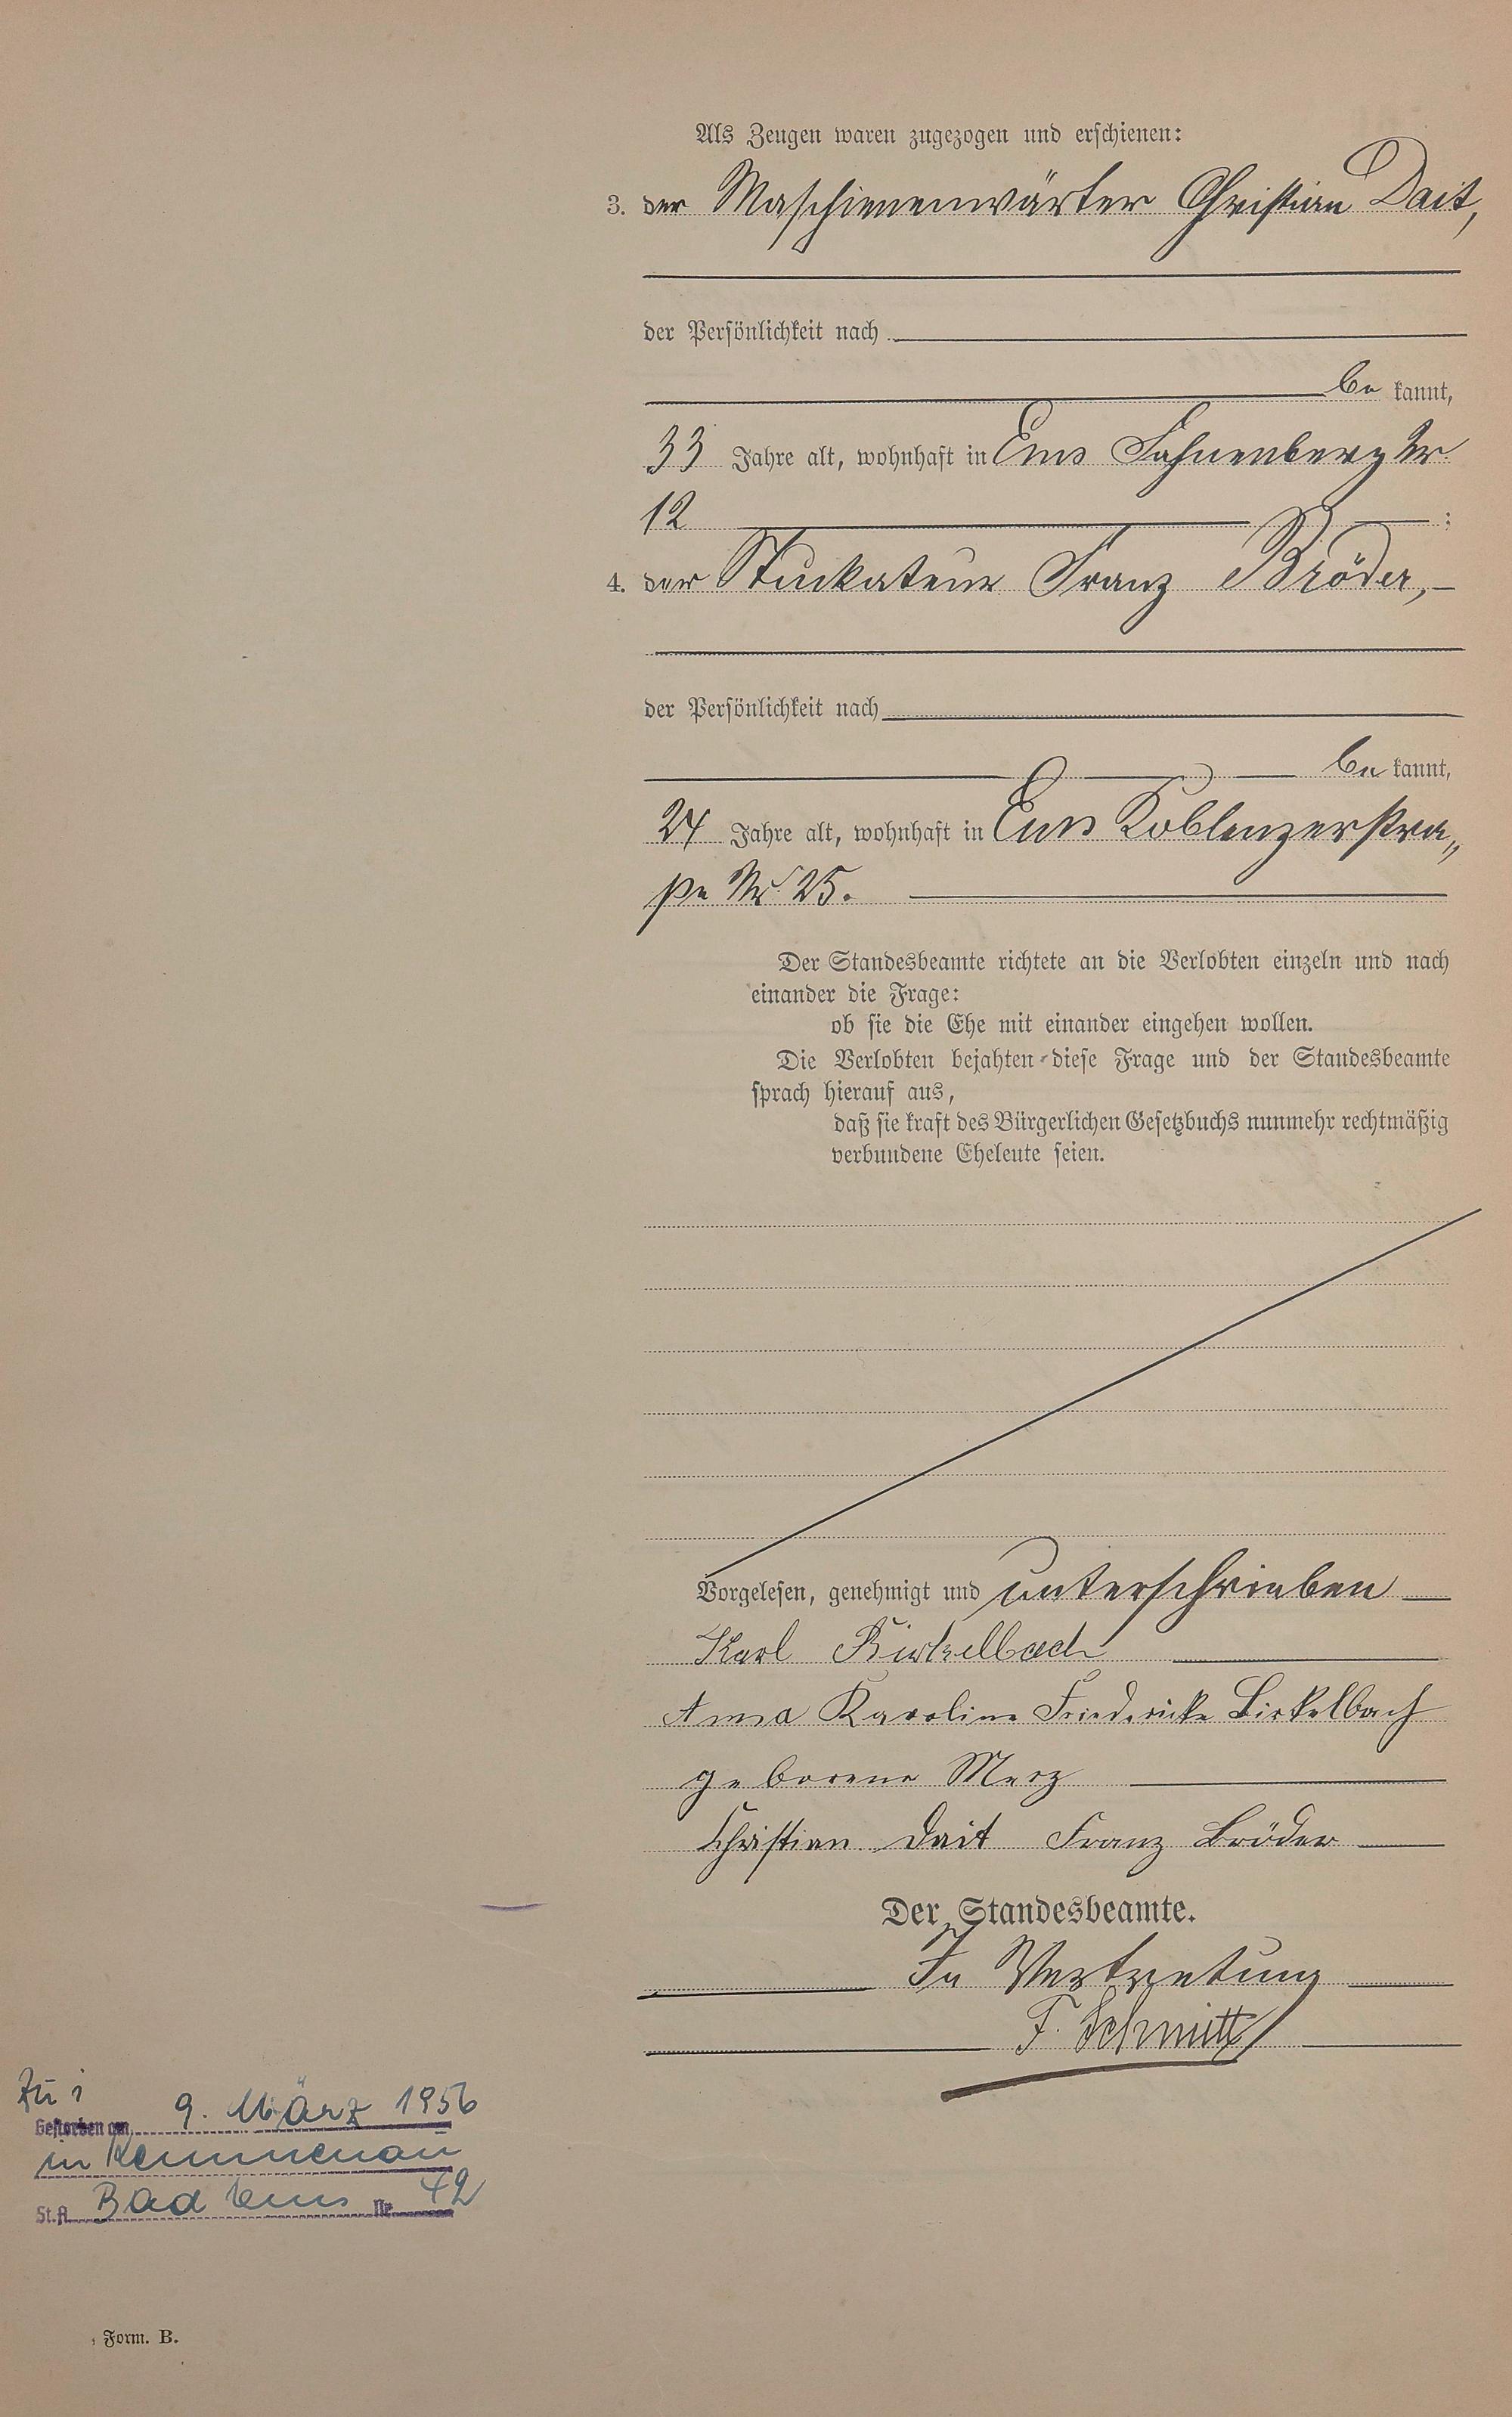 Als Zeugen waren zugezogen und erschienen:
3. der Maschienenwärter Christian Dait,
der Persönlichkeit nach
be kannt,
33 Jahre alt, wohnhaft in Ems Hahnenberg Nr
12 ;
4. der Stuckateur Franz Bröder,
der Persönlichkeit nach
be kannt,
24 Jahre alt, wohnhaft in Ems Koblenzerstra„
ße Nr 25.
Der Standesbeamte richtete an die Verlobten einzeln und nach
einander die Frage:
ob sie die Ehe mit einander eingehen wollen.
Die Verlobten bejahten diese Frage und der Standesbeamte
sprach hierauf aus,
daß sie kraft des Bürgerlichen Gesetzbuchs nunmehr rechtmäßig
verbundene Eheleute seien.
Vorgelesen, genehmigt und unterschrieben
Karl Birkelbach
Anna Karoline Friedericke Birkelbach
geborene Merz
Christian Dait Franz Bröder
Der Standesbeamte.
In Vertretung
F. Schmitt
Zu 1
Gestorben am 9. März 1956
in Kemmenau
St.A. Bad Ems Nr. 42
Form. B.